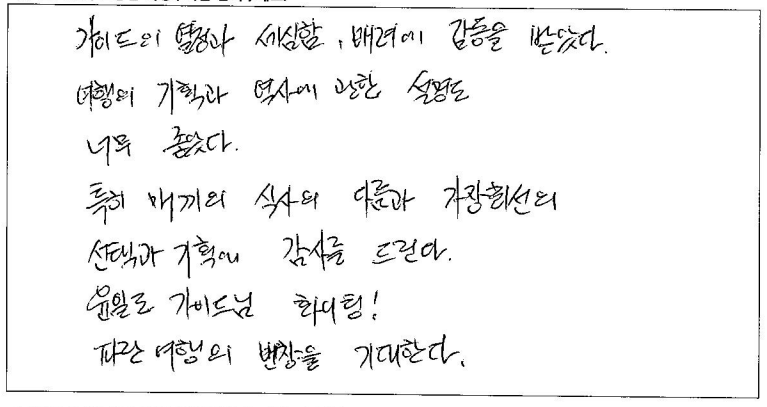 가이드의 열정과 세심함, 배려에 감동을 받았다.
여행의 기획과 역사에 관한 설명도
너무 좋았다.
특히 매끼의 식사의 다름과 가장최선의
선택과 기획에 감사를 드린다.
윤일로 가이드님 화이팅!
파란여행의 번창을 기대한다.